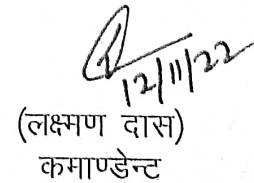 12/11/22
(लक्ष्मण दास)
कमाण्डेन्ट